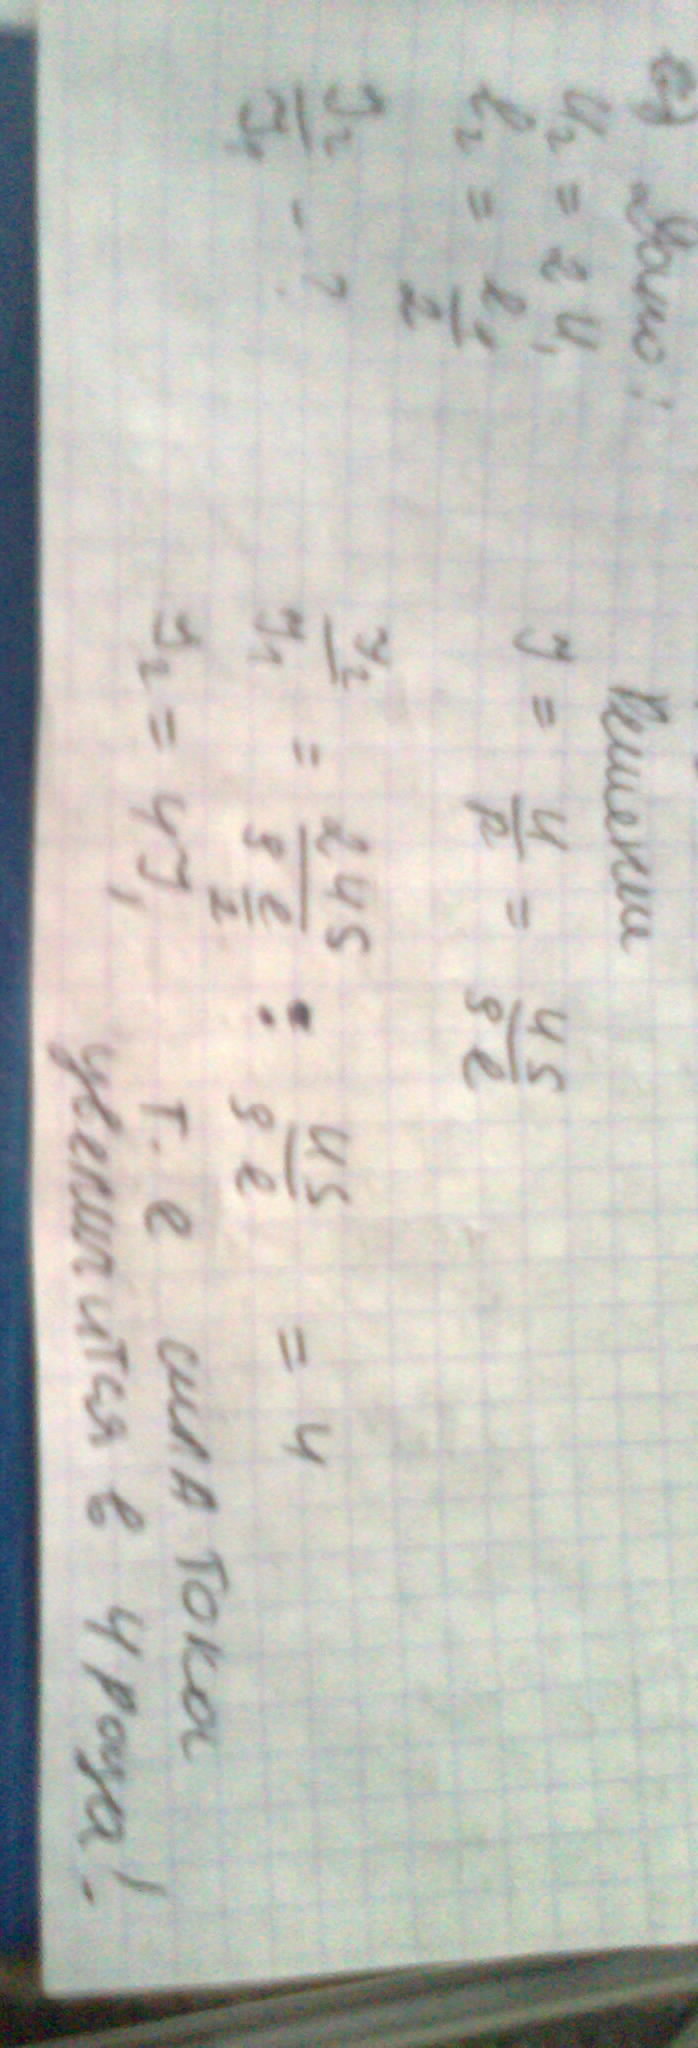 Дано:
U₂ = 2U₁
l₂ = l₁/2
J₂/J₁ - ?
Решение
J = U/R = US/ρl
J₂/J₁ = 2US/(ρ l/2) : US/ρl = 4
J₂ = 4J₁ т.е сила тока
увеличится в 4 раза!